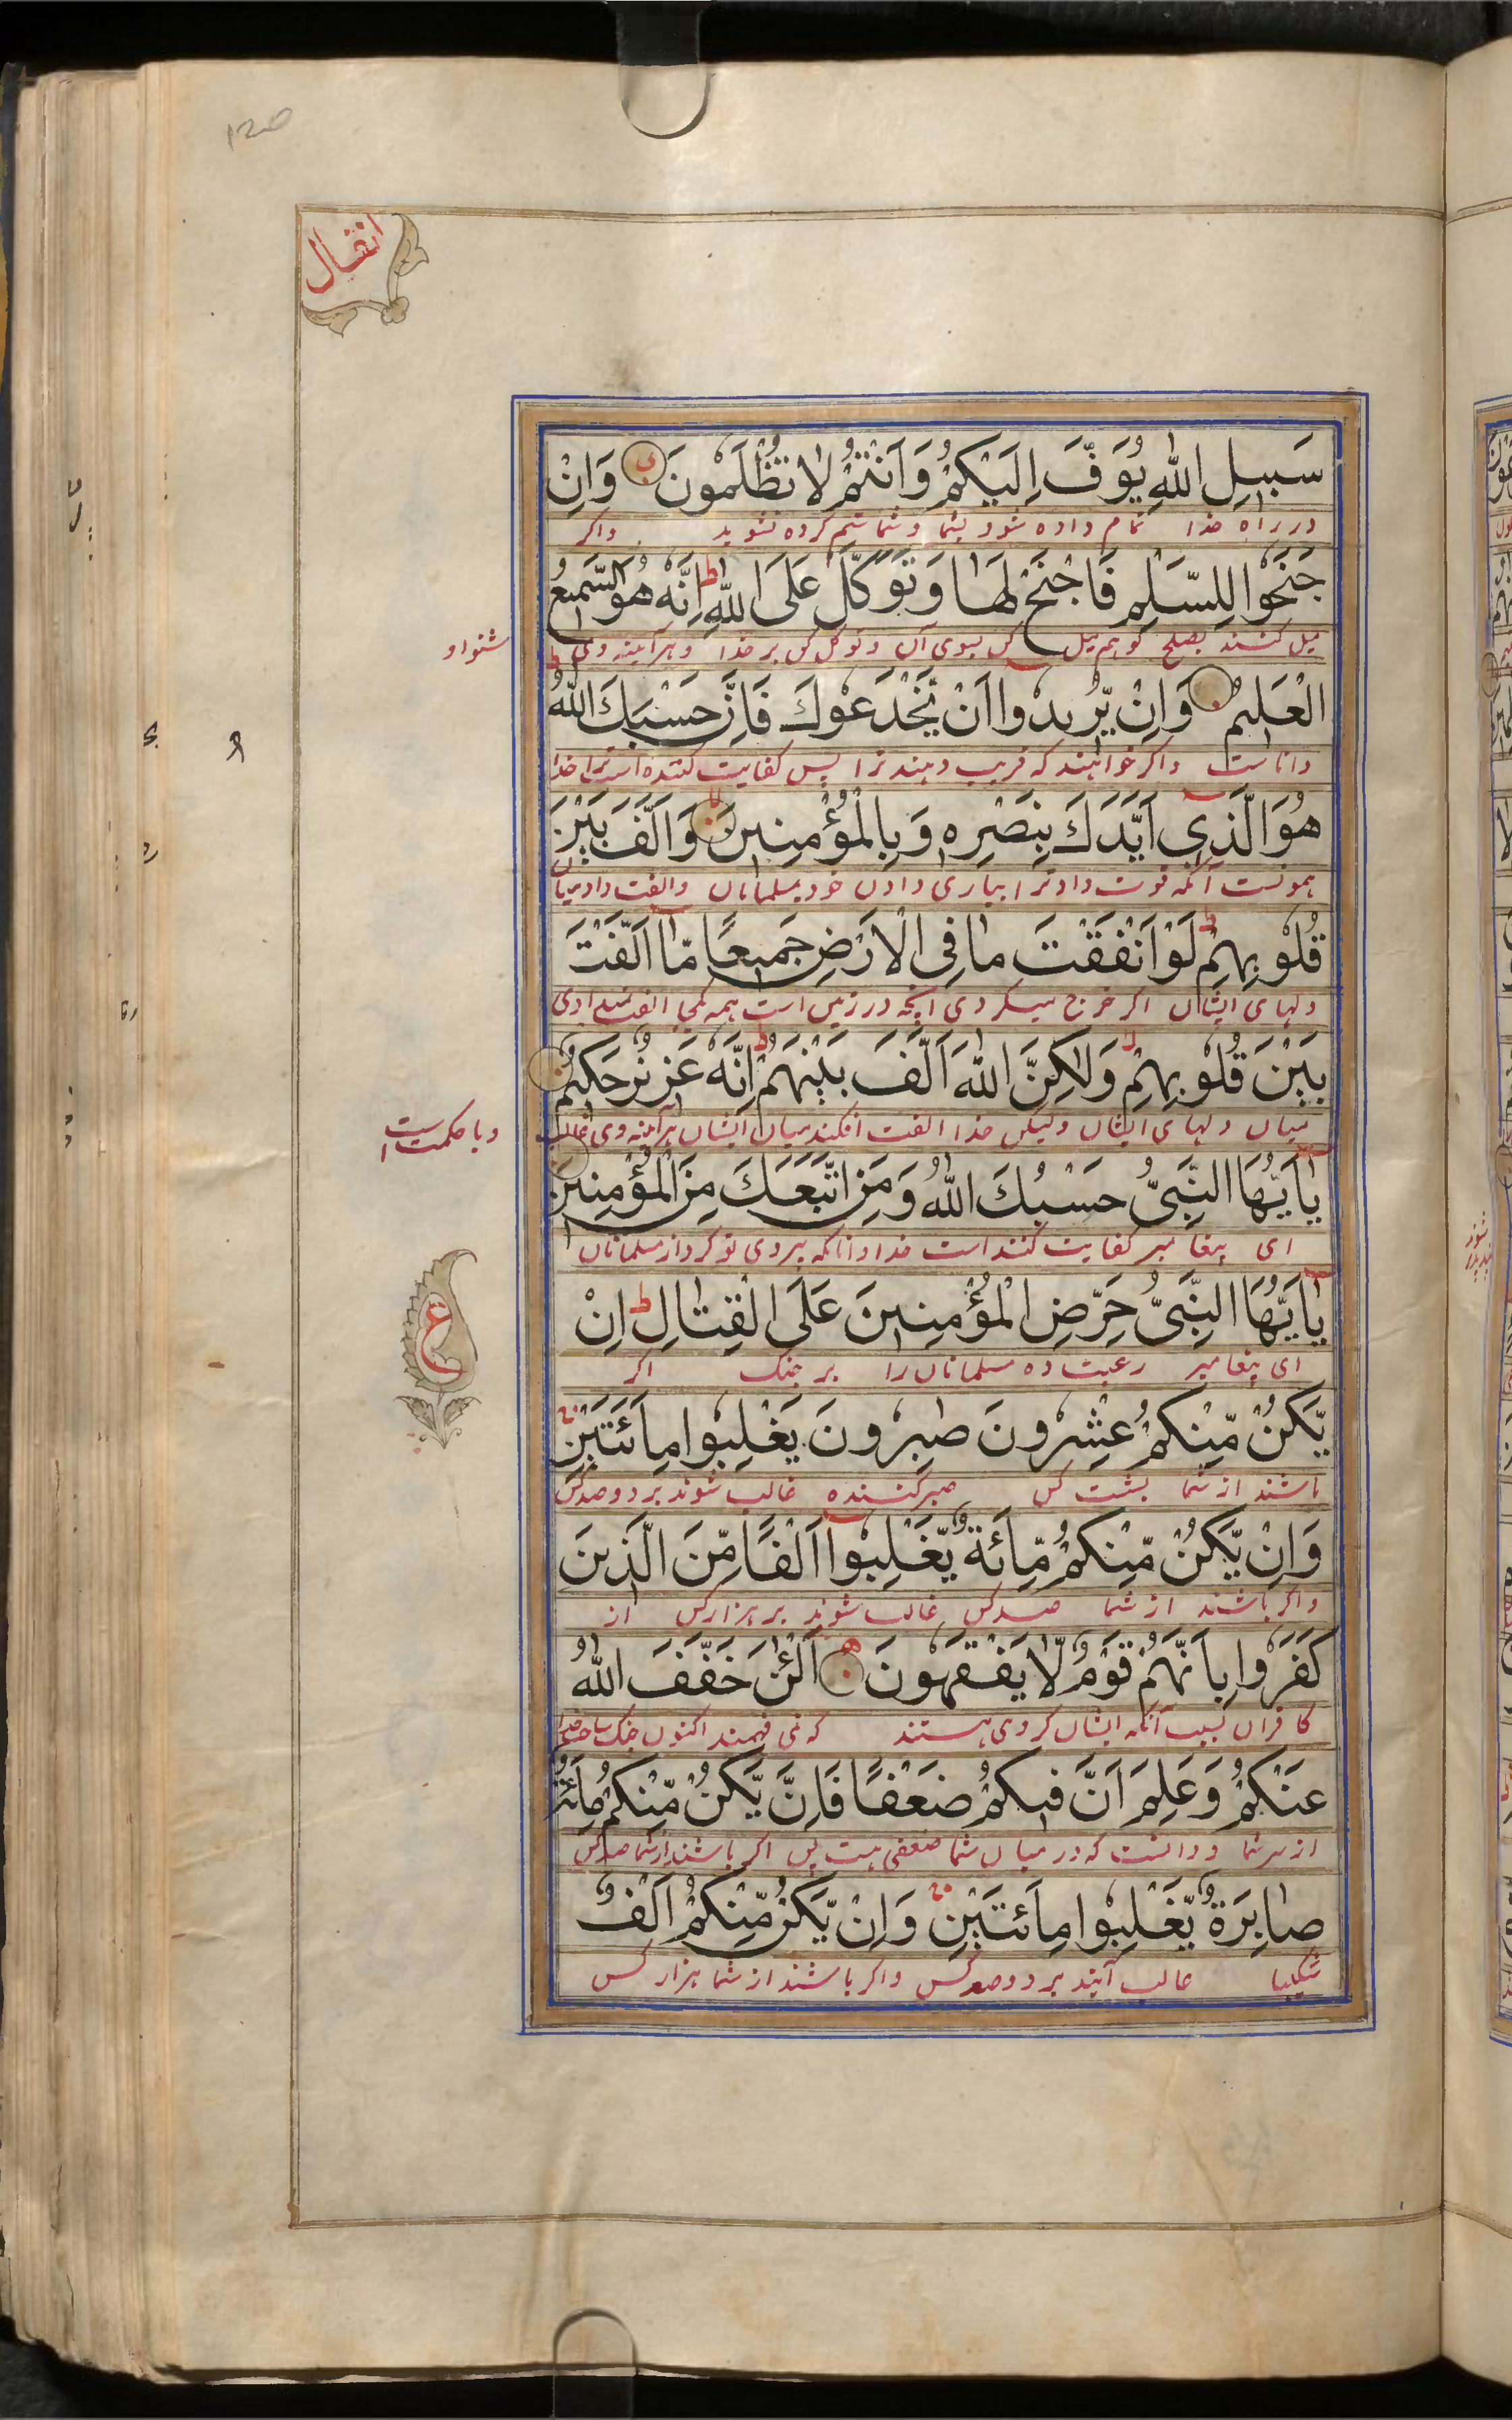 انفال
سَبِيلِ اللّٰهِ يُوَفَّ اِلَيْكُمْ وَاَنْتُمْ لَا تُظْلَمُونَ وَاِنْ
در راه خدا تمام داده شود بشما و شما ستم کرده نشوید واکر
جَنَحُوا لِلسَّلْمِ فَاجْنَحْ لَهَا وَتَوَكَّلْ عَلَى اللّٰهِ ط اِنَّهُ هُوَ السَّمِيعُ
میل کنند بصلح تو هم میل کن بسوی آن و توکل کن بر خدا هر آینه وی
شنوا و
الْعَلِيمُ وَاِنْ يُّرِيدُوا اَنْ يَّخْدَعُوكَ فَاِنَّ حَسْبَكَ اللّٰهُ ط
داناست واکر خواهند که فریب دهند ترا پس کفایت کننده است ترا خدا
هُوَ الَّذِي اَيَّدَكَ بِنَصْرِهِ وَبِالْمُؤْمِنِينَ لا وَاَلَّفَ بَيْنَ
همونست آنکه قوت داد ترا بیاری دادن خود بمسلمانان والفت داد میان
قُلُوبِهِمْ ط لَوْ اَنْفَقْتَ مَا فِي الْاَرْضِ جَمِيعًا مَّا اَلَّفْتَ
دلهای ایشان اکر خرج میکردی آنچه در زمین است همه یکجا الفت ندادی
بَيْنَ قُلُوبِهِمْ لا وَلٰكِنَّ اللّٰهَ اَلَّفَ بَيْنَهُمْ ط اِنَّهُ عَزِيزٌ حَكِيمٌ
میان دلهای ایشان ولیکن خدا الفت افکند میان ایشان هر آینه وی غالب
و با حکمت است
يٰاَيُّهَا النَّبِيُّ حَسْبُكَ اللّٰهُ وَمَنِ اتَّبَعَكَ مِنَ الْمُؤْمِنِينَ
ای پیغامبر کفایت کننده است خدا و آنانکه پیروی تو کرد از مسلمانان
ع
يٰاَيُّهَا النَّبِيُّ حَرِّضِ الْمُؤْمِنِينَ عَلَى الْقِتَالِ ط اِنْ
ای پیغامبر رغبت ده مسلمانان را بر جنک اکر
يَّكُنْ مِّنْكُمْ عِشْرُونَ صٰبِرُونَ يَغْلِبُوا مِائَتَيْنِ ج
باشند از شما بیست کس صبر کننده غالب شوند بر دو صد کس
وَاِنْ يَّكُنْ مِّنْكُمْ مِّائَةٌ يَّغْلِبُوا اَلْفًا مِّنَ الَّذِينَ
واکر باشند از شما صد کس غالب شوند بر هزار کس از
كَفَرُوا بِاَنَّهُمْ قَوْمٌ لَّا يَفْقَهُونَ اَلْئٰنَ خَفَّفَ اللّٰهُ
کافران بسبب آنکه ایشان کروهی هستند که نمی فهمند اکنون سبک ساخت خدا
عَنْكُمْ وَعَلِمَ اَنَّ فِيكُمْ ضَعْفًا فَاِنْ يَّكُنْ مِّنْكُمْ مِّائَةٌ
از سر شما و دانست که در میان شما ضعفی هست پس اکر باشند از شما صد کس
صَابِرَةٌ يَّغْلِبُوا مِائَتَيْنِ ج وَاِنْ يَّكُنْ مِّنْكُمْ اَلْفٌ
شکیبا غالب آیند بر دو صد کس واکر باشند از شما هزار کس